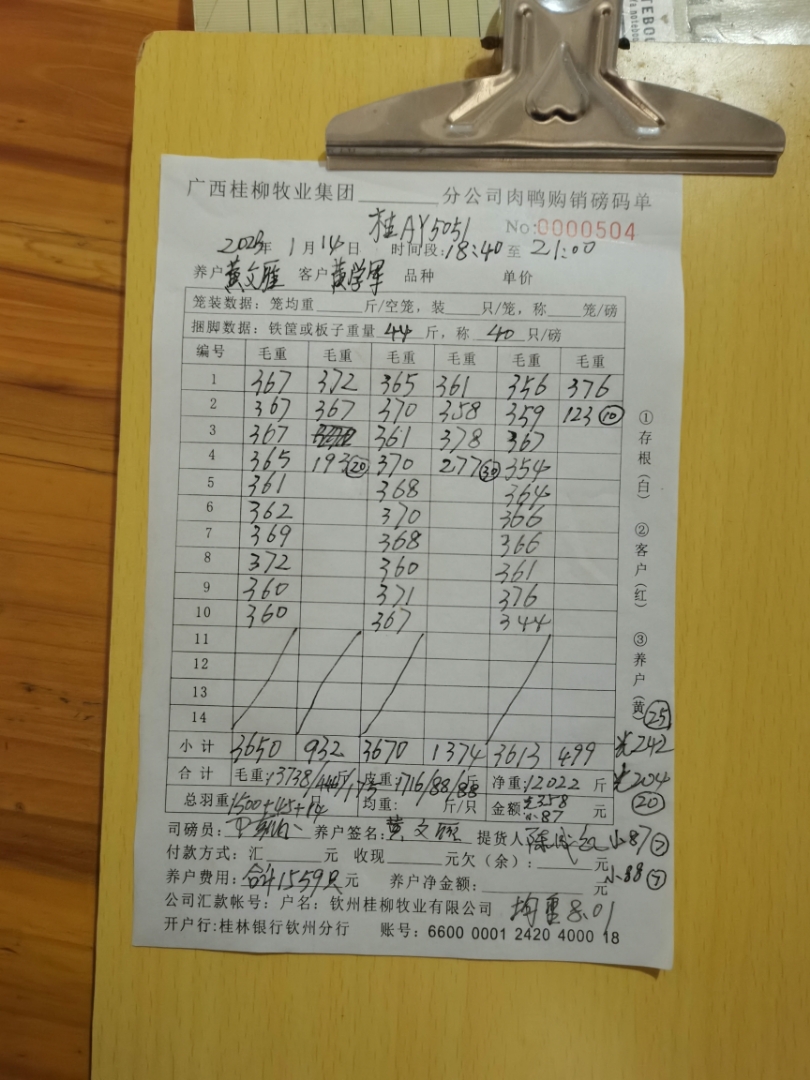 广西桂柳牧业集团______分公司肉鸭购销磅码单
桂AY5051 No:0000504
2023年 1月14日 时间段:18:40至21:00
养户黄文雁 客户黄学军 品种 单价
笼装数据：笼均重____斤/空笼，装____只/笼，称____笼/磅
捆脚数据：铁筐或板子重量 44 斤，称 40 只/磅
编号 毛重 毛重 毛重 毛重 毛重 毛重
1 367 372 365 361 356 376
2 367 367 370 358 359 123⑩
3 367 361 378 367
4 365 193⑳ 370 277㉚ 354
5 361 368 364
6 362 370 366
7 369 368 366
8 372 360 361
9 360 371 376
10 360 367 344
11
12
13
14
小计 3650 932 3670 1374 3613 499
合计 毛重:13738/ 斤 皮重:1716/88/88斤 净重:12022斤
总羽重1500+45+14只 均重: 斤/只 金额 358 87 元
司磅员: 养户签名:黄文 提货人陈
付款方式：汇______元 收现______元欠（余）：______元
养户费用:合计1559只元 养户净金额:__________元
公司汇款帐号：户名：钦州桂柳牧业有限公司 均重8.01
开户行:桂林银行钦州分行 账号：6600 0001 2420 4000 18
①存根(白) ②客户(红) ③养户(黄)
㉕
光242
光204
⑳
小87⑦
小88⑦
TEBOO